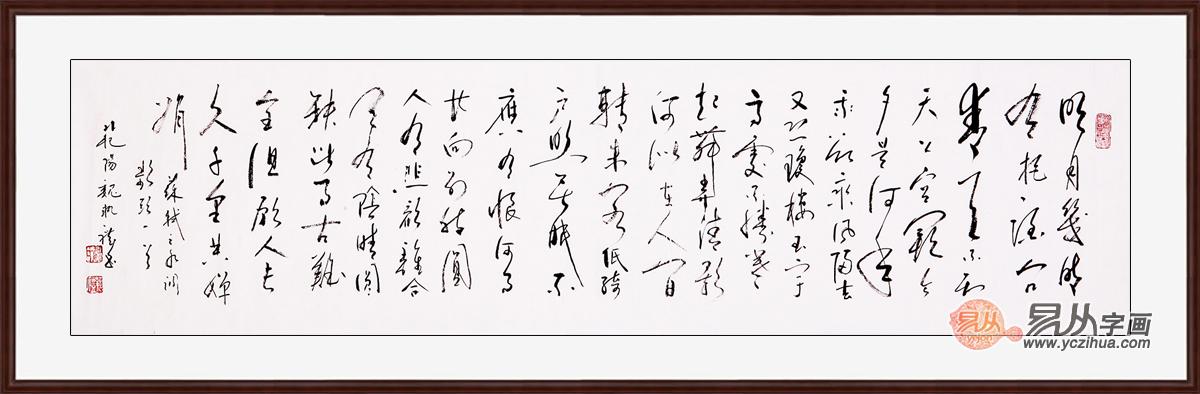 明月幾時
有把酒问
青天不知
天上宫闕今
夕是何年
我欲乘风歸去
又恐瓊楼玉宇
高處不勝寒
起舞弄清影
何似在人间
轉朱阁低綺
户照无眠不
應有恨何事
向别时圆
人有悲歡離合
月有陰晴圆
缺此事古難
全但願人长
久千里共嬋
娟
蘇軾之水调
歌頭一首
易从字画
www.yczihua.com